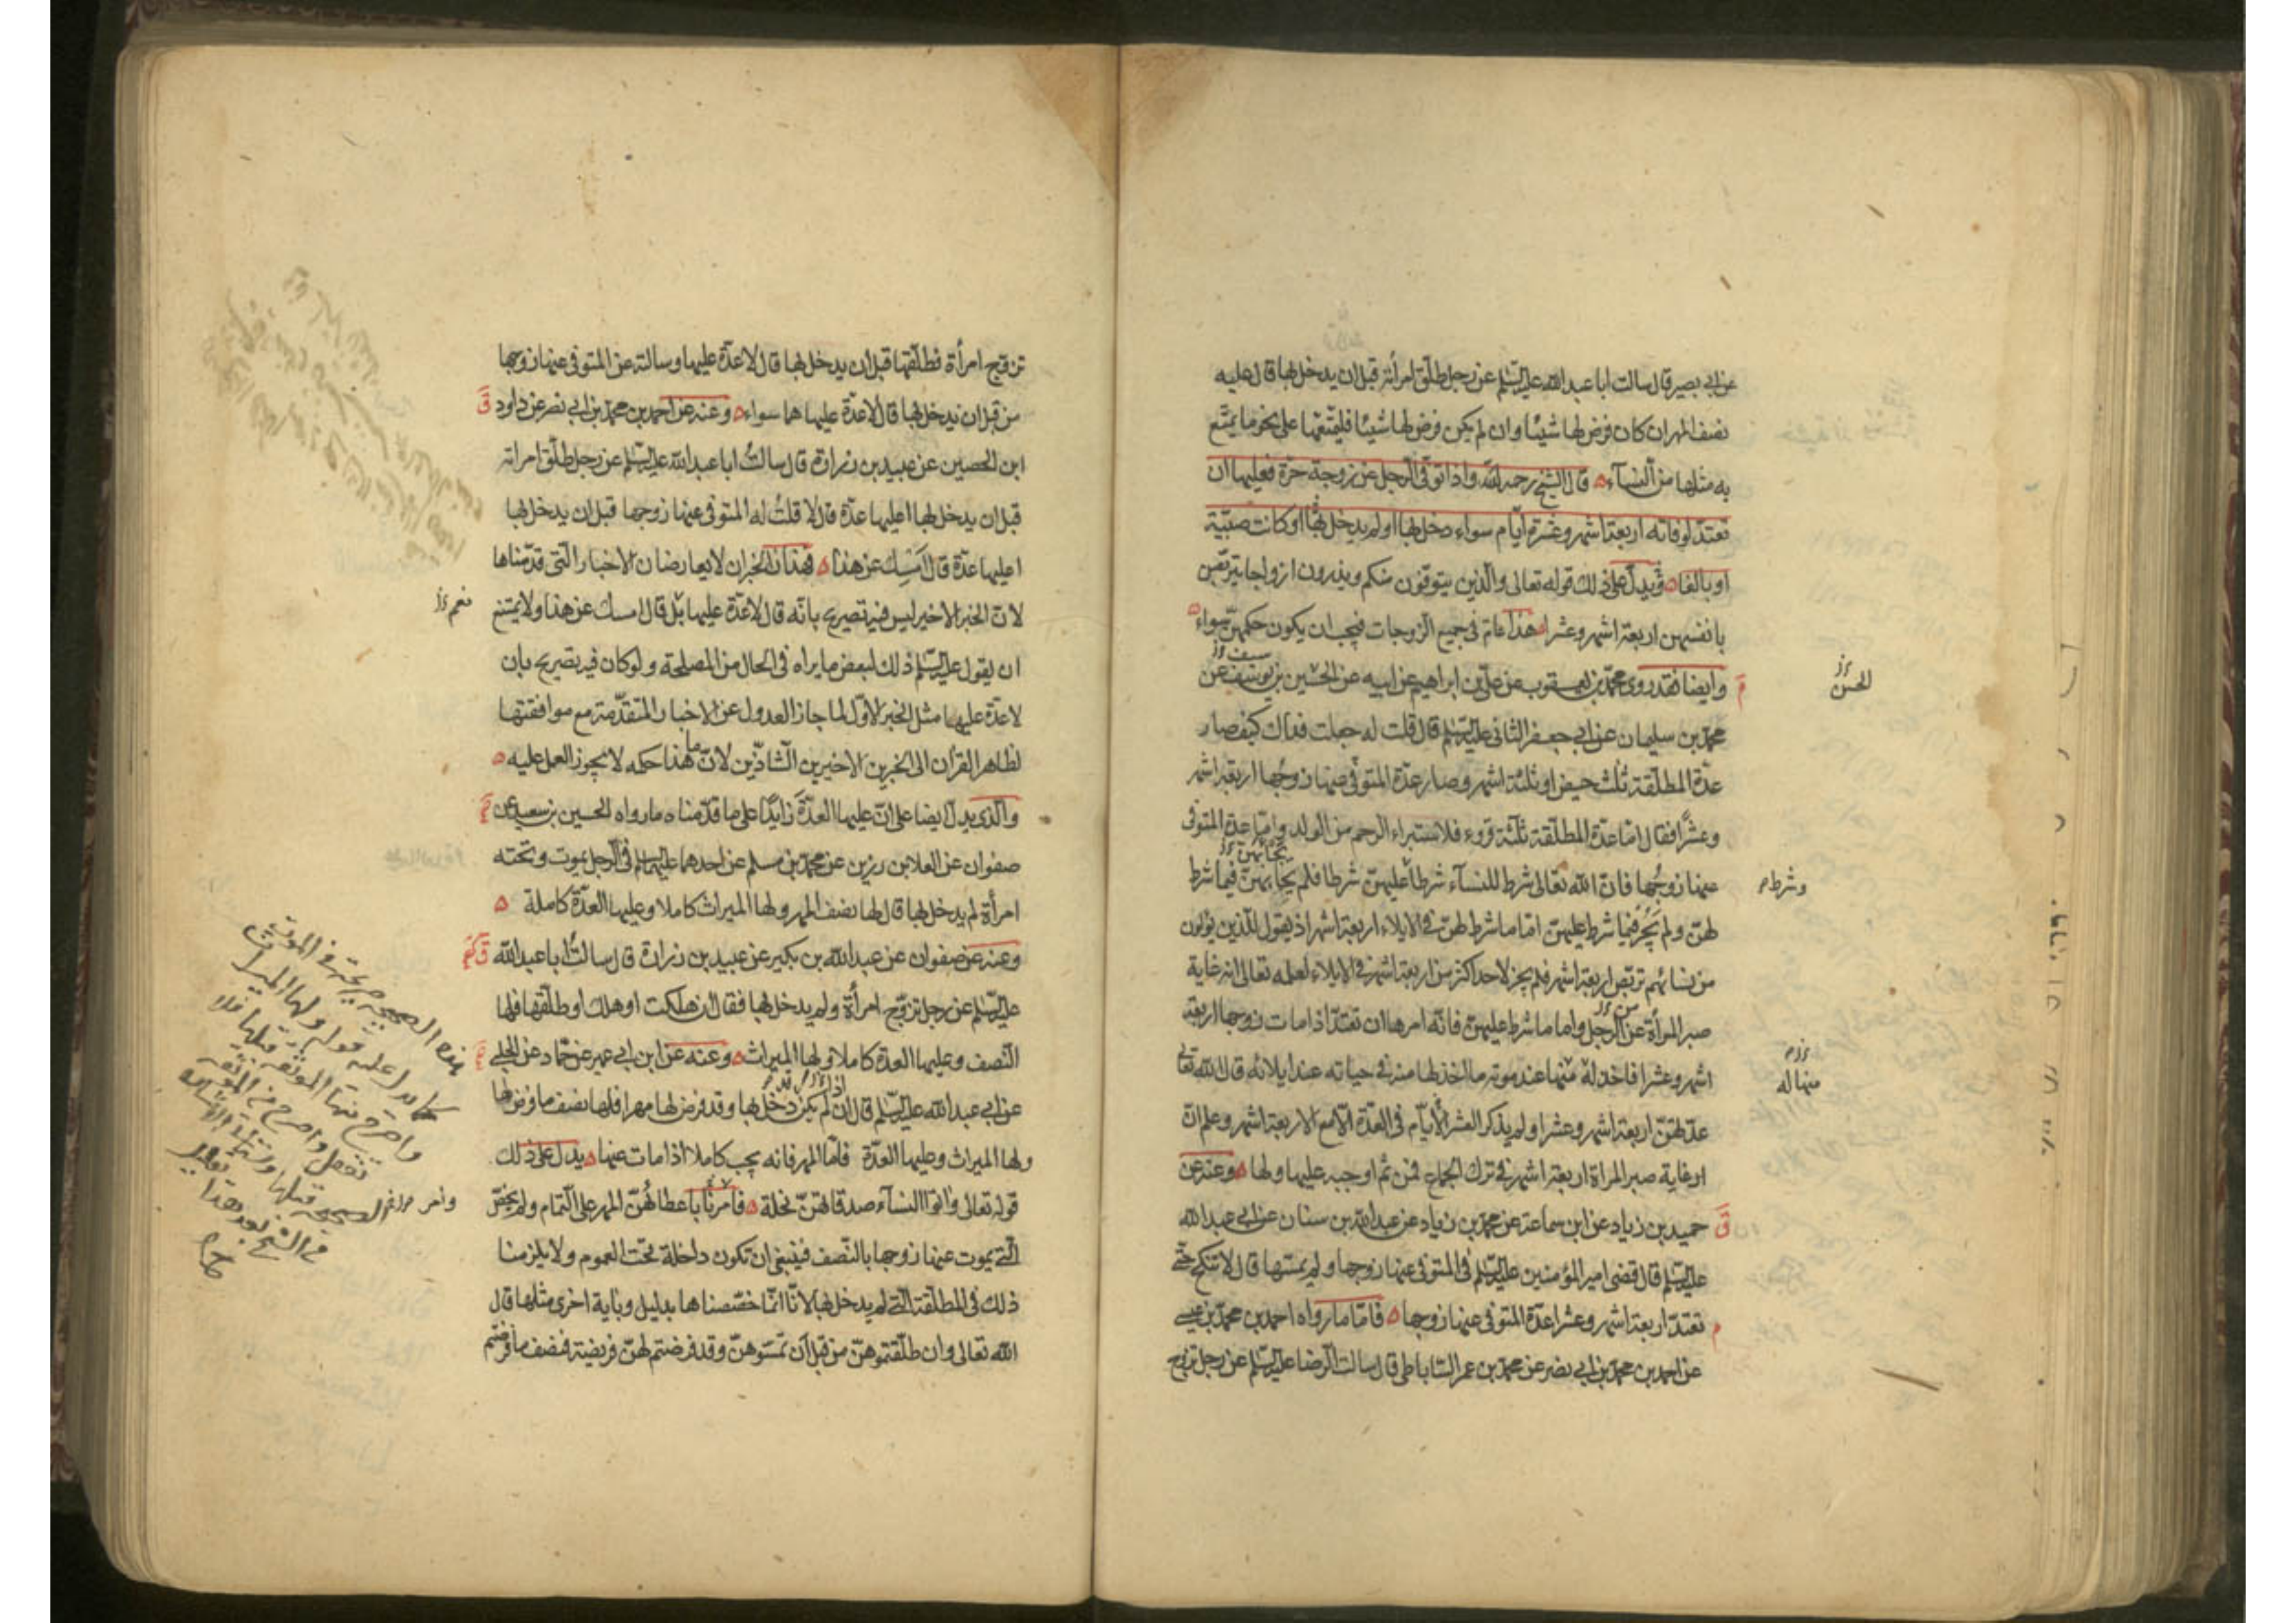 عن ابي بصير قال سالت ابا عبد الله عليه السلم عن رجل طلّق امراته قبل ان يدخل بها قال عليه
نصف المهر ان كان فرض لها شيئا وان لم يكن فرض لها شيئا فليمتّعها على نحو ما يمتّع
به مثلها من النسآء قال الشيخ رحمه الله واذا توفّى الرجل عن زوجة حرّة فعليها ان
تعتدّ لوفاته اربعة اشهر وعشرة ايّام سواء دخل بها او لم يدخل بها او كانت صبيّة
او بالغا ويدلّ على ذلك قوله تعالى والّذين يتوفّون منكم ويذرون ازواجا يتربّصن
بانفسهن اربعة اشهر وعشرا هذا عامّ فى جميع الزوجات فيجب ان يكون حكمهنّ سواء
وايضا فقد روى محمّد بن يعقوب عن على بن ابراهيم عن ابيه عن الحسين بن يوسف عن
سيف
الحسن
محمّد بن سليمان عن ابى جعفر الثانى عليه السلم قال قلت له جعلت فداك كيف صار
عدّة المطلّقة ثلث حيض او ثلثة اشهر وصار عدّة المتوفّى عنها زوجها اربعة اشهر
وعشرًا فقال امّا عدّة المطلّقة ثلثة قروء فلاستبراء الرحم من الولد وامّا عدة المتوفى
عنها زوجها فانّ الله تعالى شرط للنسآء شرطا عليهنّ شرطا فلم يحابهنّ فيما شرط
وشرط
لهنّ ولم يجر فيما شرط عليهنّ امّا ما شرط لهنّ فى الايلاء اربعة اشهر اذ يقول للّذين يؤلون
من نسائهم تربّص اربعة اشهر فلم يجز لاحد اكثر من اربعة اشهر فى الايلاء لعلمه تعالى انه غاية
صبر المرأة عن الرجل واما ما شرط عليهنّ فانّه امرها ان تعتدّ اذا مات زوجها اربعة
من
اشهر وعشرا فاخذ له منها عند موته ما اخذ لها منه فى حياته عند ايلائه قال الله تعالى
منها له
عدّتهنّ اربعة اشهر وعشرا ولم يذكر العشر الأيّام فى العدّة الّا مع الاربعة اشهر وعلم انّ
غاية صبر المراة اربعة اشهر فى ترك الجماع فمن ثم اوجبه عليها ولها وعنه عن
حميد بن زياد عن ابن سماعة عن محمّد بن زياد عن عبد الله بن سنان عن ابى عبد الله
عليه السلم قال قضى امير المؤمنين عليه السلم فى المتوفى عنها زوجها ولم يمسّها قال لا تنكح حتّى
تعتدّ اربعة اشهر وعشرا عدّة المتوفى عنها زوجها فامّا ما رواه احمد بن محمّد بن عيسى
عن احمد بن محمّد بن ابى نصر عن محمّد بن عمر الساباطى قال سالت الرضا عليه السلم عن رجل تزوج
تزوّج امرأة فطلّقها قبل ان يدخل بها قال لا عدّة عليها وسالته عن المتوفى عنها زوجها
من قبل ان يدخل بها قال لا عدّة عليها هما سواء وعنه عن احمد بن محمّد بن ابى نصر عن داود
ابن الحصين عن عبيد بن زرارة قال سالتُ ابا عبد الله عليه السلم عن رجل طلّق امراته
قبل ان يدخل بها اعليها عدّة قال لا قلتُ له المتوفى عنها زوجها قبل ان يدخل بها
اعليها عدّة قال امسك عن هذا فهذان الخبران لا يعارضان الاخبار الّتى قدّمناها
لانّ الخبر الاخير ليس فيه تصريح بانّه قال لا عدّة عليها بل قال امسك عن هذا ولا يمتنع
نعم
ان يقول عليه السلم ذلك لبعض ما يراه فى الحال من المصلحة ولو كان فيه تصريح بان
لا عدّة عليها مثل الخبر الاوّل لما جاز العدول عن الاخبار المتقدّمة مع موافقتها
لظاهر القرآن الى الخبرين الاخيرين الشاذّين لانّ ما هذا حكمه لا يجوز العمل عليه
والّذى يدلّ ايضا على انّ عليها العدّة زايدًا على ما قدّمناه ما رواه الحسين بن سعيد عن
صفوان عن العلا بن رزين عن محمّد بن مسلم عن احدهما عليهما السلم فى الرجل يموت وتحته
امرأة لم يدخل بها قال لها نصف المهر ولها الميراث كاملا وعليها العدّة كاملة
وعنه عن صفوان عن عبد الله بن بكير عن عبيد بن زرارة قال سالتُ ابا عبد الله
عليه السلم عن رجل تزوّج امرأة ولم يدخل بها فقال ان هلكت او هلك او طلّقها فلها
النّصف وعليها العدّة كاملا ولها الميراث وعنه عن ابن ابى عمير عن حمّاد عن الحلبى
عن ابى عبد الله عليه السلم قال ان لم يكن دخل بها وقد فرض لها مهرا فلها نصف ما فرض لها
ولها الميراث وعليها العدّة فامّا المهر فانه يجب كاملا اذا مات عنها يدل على ذلك
قوله تعالى واتوا النسآء صدقاتهنّ نحلة فامرنا باعطائهنّ المهر على التمام ولم يخصّ
الّتى يموت عنها زوجها بالنّصف فينبغى ان تكون داخلة تحت العموم ولا يلزمنا
ذلك فى المطلّقة الّتى لم يدخل بها لانّا انّما خصّصناها بدليل وباية اخرى مثلها قال
الله تعالى وان طلّقتموهنّ من قبل ان تمسّوهنّ وقد فرضتم لهنّ فريضة فنصف ما فرضتم